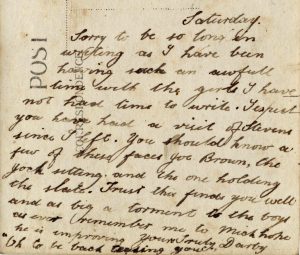 Saturday.
Sorry to be so long in
writing as I have been
having such an awfull
time with the girls I have
not had time to write. I expect
you have had a visit of Stevens
since I left. You should know a
few of these faces Joe Brown, the
jock sitting. and the one holding
the slate. Trust this finds you well
and as big a torment to the boys
as ever (remember me to Mick hope
he is improving Yours Truly Darby
"Oh to be back teasing you".
POST
CORRESPONDENCE